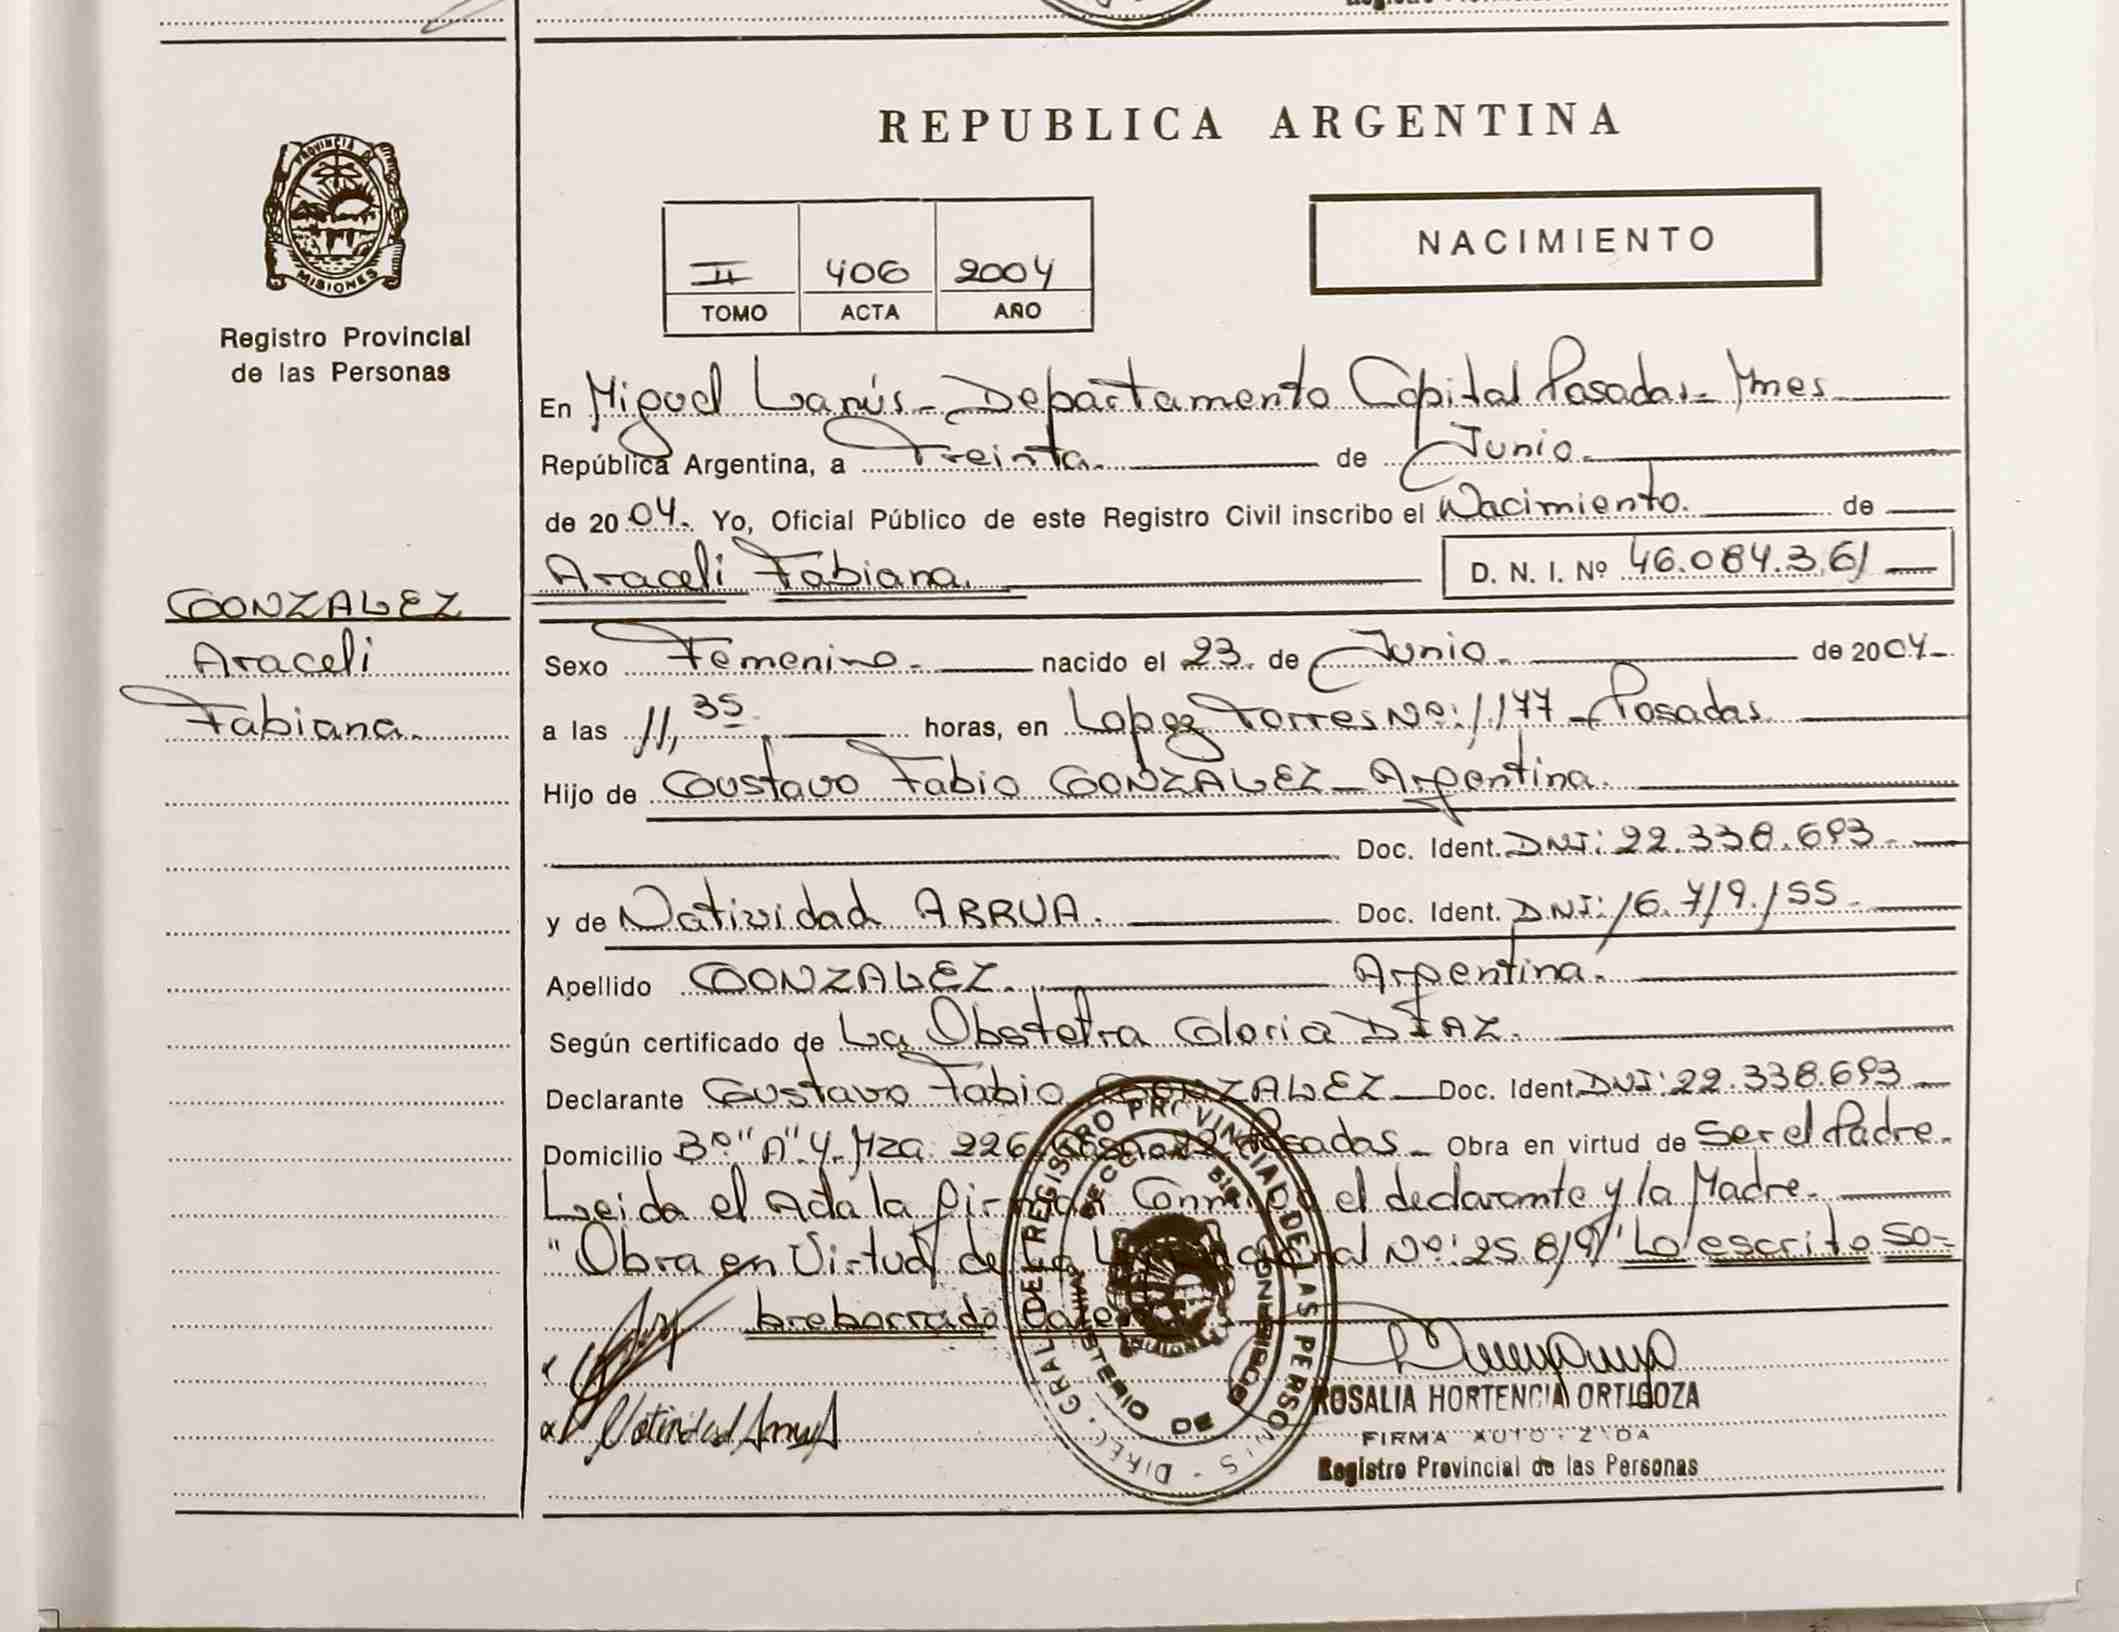 REPUBLICA ARGENTINA
PROVINCIA DE
MISIONES
Registro Provincial
de las Personas
NACIMIENTO
II 406 2004
TOMO ACTA AÑO
En Miguel Lanús - Departamento Capital Posadas - Mnes
República Argentina, a Treinta. de Junio.
de 2004. Yo, Oficial Público de este Registro Civil inscribo el Nacimiento. de
Araceli Fabiana. D. N. I. Nº 46.084.361
GONZALEZ
Araceli
Fabiana.
Sexo Femenino. nacido el 23. de Junio. de 2004.
a las 11,35. horas, en Lopez Torres Nº: 1177 - Posadas
Hijo de Gustavo Fabio GONZALEZ - Argentina.
Doc. Ident. DNI: 22.338.693.
y de Natividad ARRUA. Doc. Ident. DNI: 16.719.155.
Apellido GONZALEZ. Argentina.
Según certificado de La Obstetra Gloria DIAZ.
Declarante Gustavo Fabio GONZALEZ Doc. Ident. DNI: 22.338.693
Domicilio Bº "A" 4. Mza. 226 Posadas - Obra en virtud de Ser el Padre.
Leida el Acta la firman Conmigo el declarante y la Madre.
"Obra en Virtud de La Ley Nacional Nº: 25.819" Lo escrito so-
breborrado Vale
Natividad Arrua
ROSALIA HORTENCIA ORTIGOZA
FIRMA AUTORIZADA
Registro Provincial de las Personas
DIREC. GRAL. DEL REGISTRO PROVINCIAL DE LAS PERSONAS
MINISTERIO DE GOBIERNO